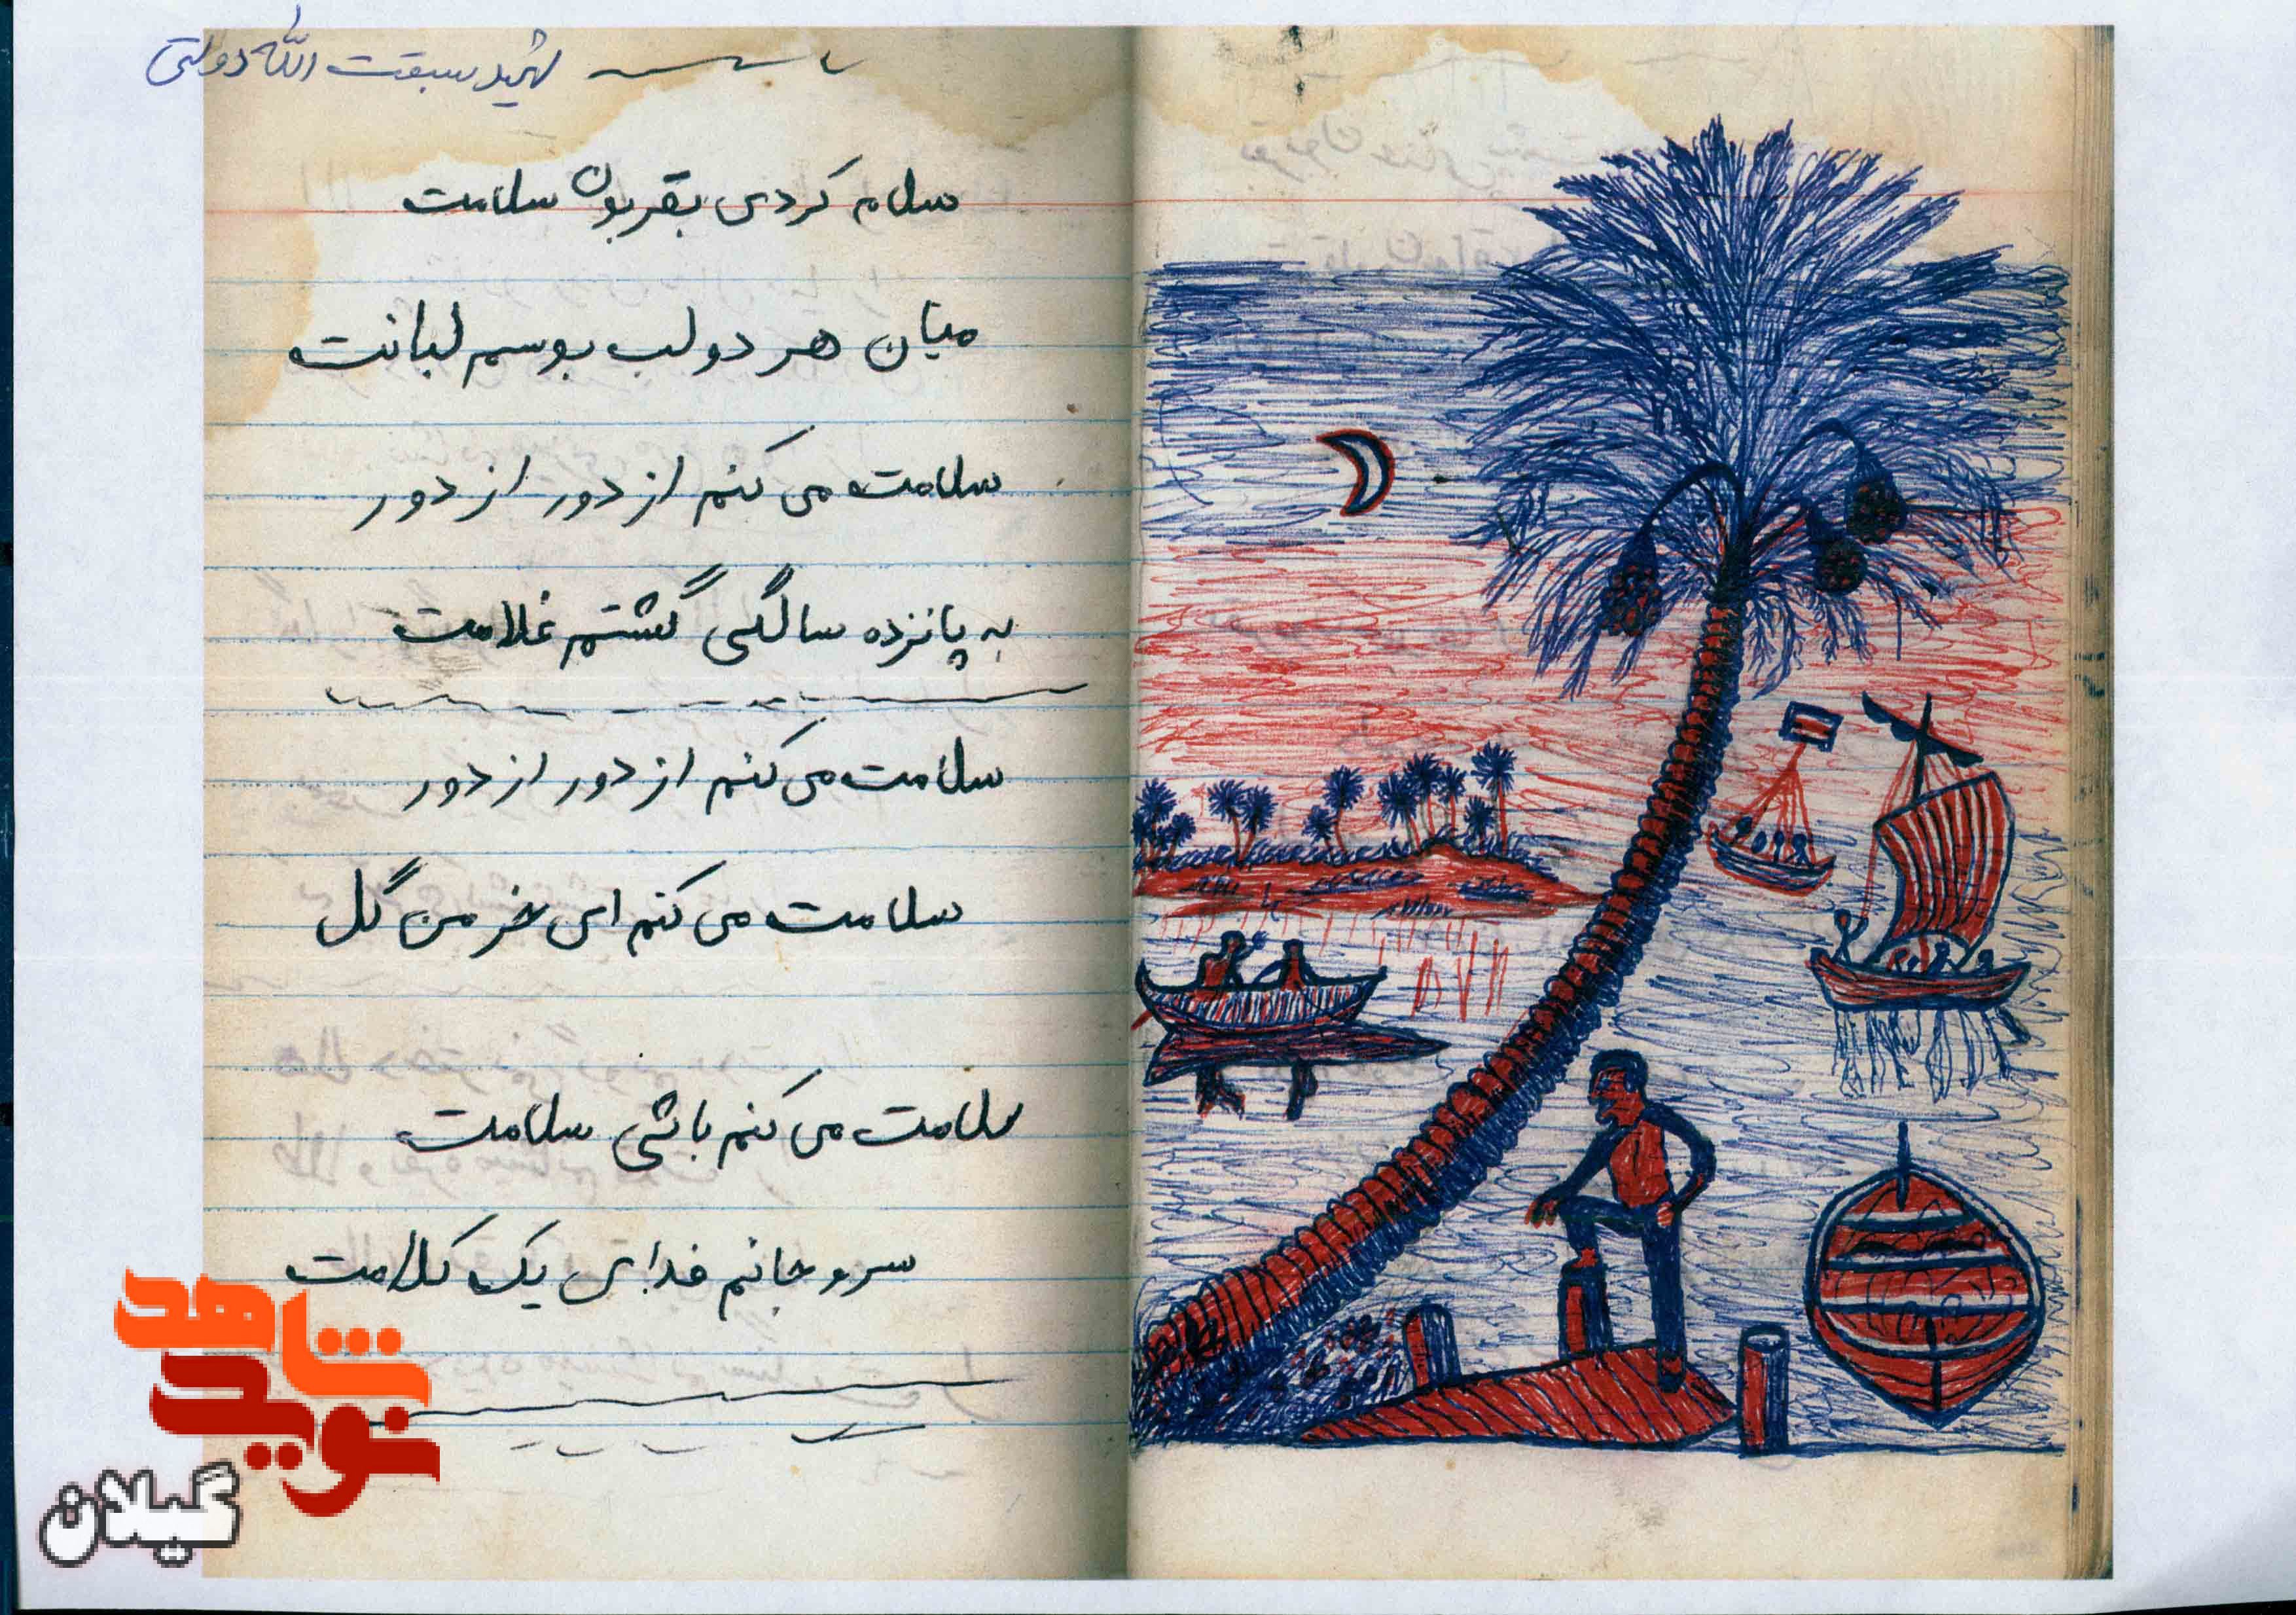 شهید سبقت الله دولتی
سلام کردی بقربون سلامت
میان هر دو لب بوسم لبانت
سلامت می کنم از دور از دور
به پانزده سالگی گشتم غلامت
سلامت می کنم از دور از دور
سلامت می کنم ای خرمن گل
سلامت می کنم باشی سلامت
سر و جانم فدای یک کلامت
نوید شاهد
گیلان